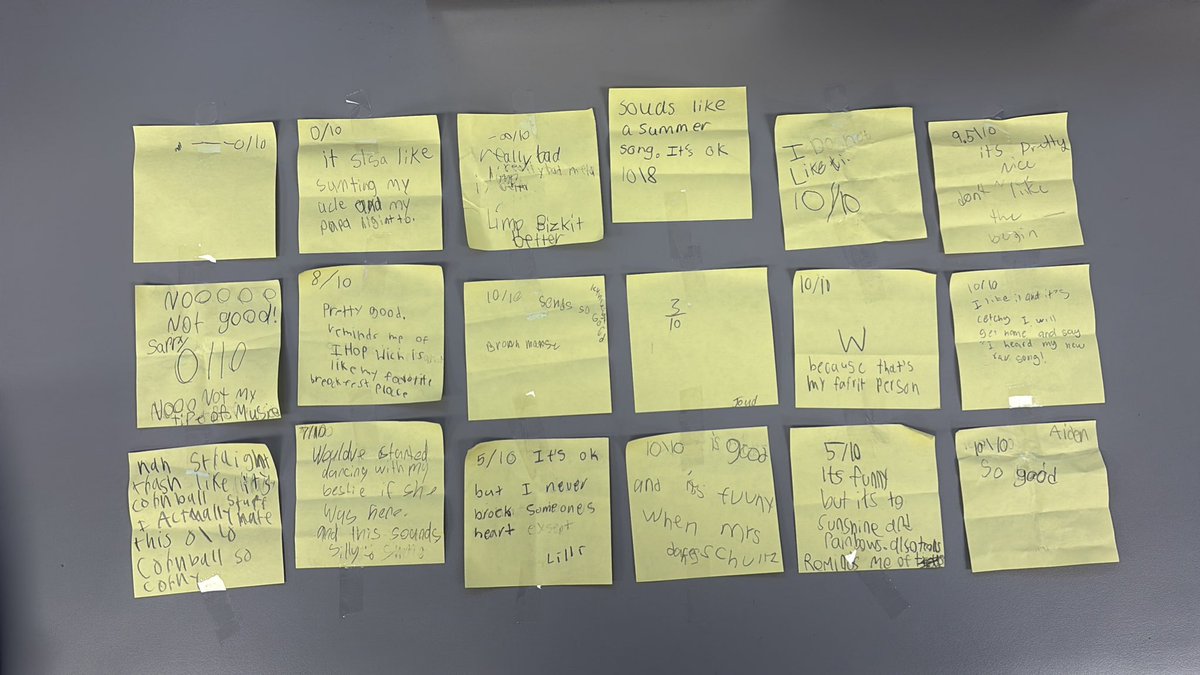 -0/10
0/10
it
like
my
ucle and my
papa
-∞/10
really bad
Limp Bizkit
better
souds like
a summer
song. It's ok
10\8
I Do not
Like it.
10/10
9.5\10
its pretty
nice
don't like
the
begin
NOOOOO
Not good!
Sarry
0/10
NOOO Not my
type of Music
8/10
Pretty good.
reminds me of
IHOP wich is
like my favorite
breakfest place
10/10 Sonds so
Good
Brown
3
10
Joud
10/11
W
because that's
my fafrit person
10/10
I like it and it's
catchy I will
get home and say
"I heard my new
fav song!
nah Straight
trash like it's
cornball stuff
I Actually hate
this 0\10
Cornball so
corny
7/100
Wouldve started
dancing with my
bestie if she
was here.
and this sounds
silly
5/10 It's ok
but I never
brock someones
heart except
Lills
10\10 is good
and its funny
when mrs
schultz
5/10
Its funny
but its to
sunshine and
rainbows. also
Reminds me of
10\100 Aiden
So good